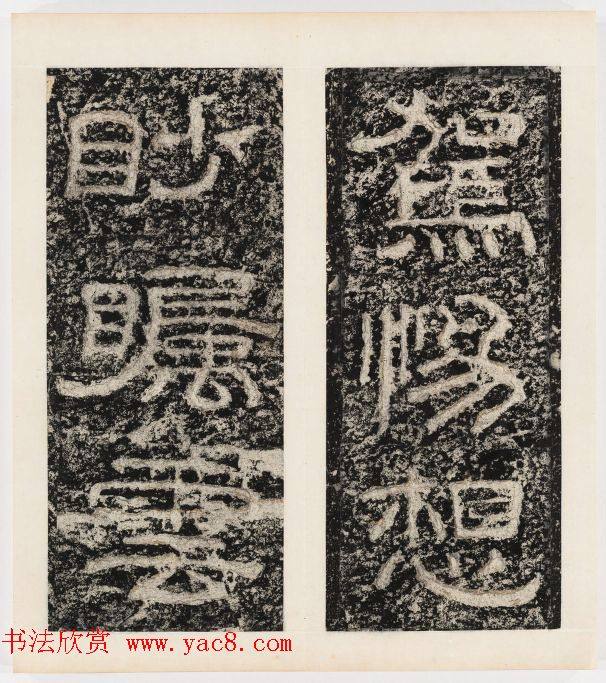 駕惕想
眇矚雲
书法欣赏 www.yac8.com